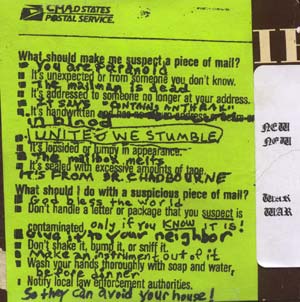 CHAD STATES
POSTAL SERVICE
What should make me suspect a piece of mail?
You are paranoid
It's unexpected or from someone you don't know.
The mailman is dead
It's addressed to someone no longer at your address.
It says "CONTAINS ANTHRAX"
It's handwritten and has no
in blood
UNITED WE STUMBLE
It's lopsided or lumpy in appearance.
The mailbox melts
It's sealed with excessive amounts of tape.
IT'S FROM DR. CHADBOURNE
What should I do with a suspicious piece of mail?
God bless the world
Don't handle a letter or package that you suspect is
contaminated only if you KNOW IT is!
Give it to your neighbor
Don't shake it, bump it, or sniff it.
Make an instrument out of it
Wash your hands thoroughly with soap and water.
before dinner
Notify local law enforcement authorities.
So they can avoid your house!
NEW
NOW
WAR
WAR